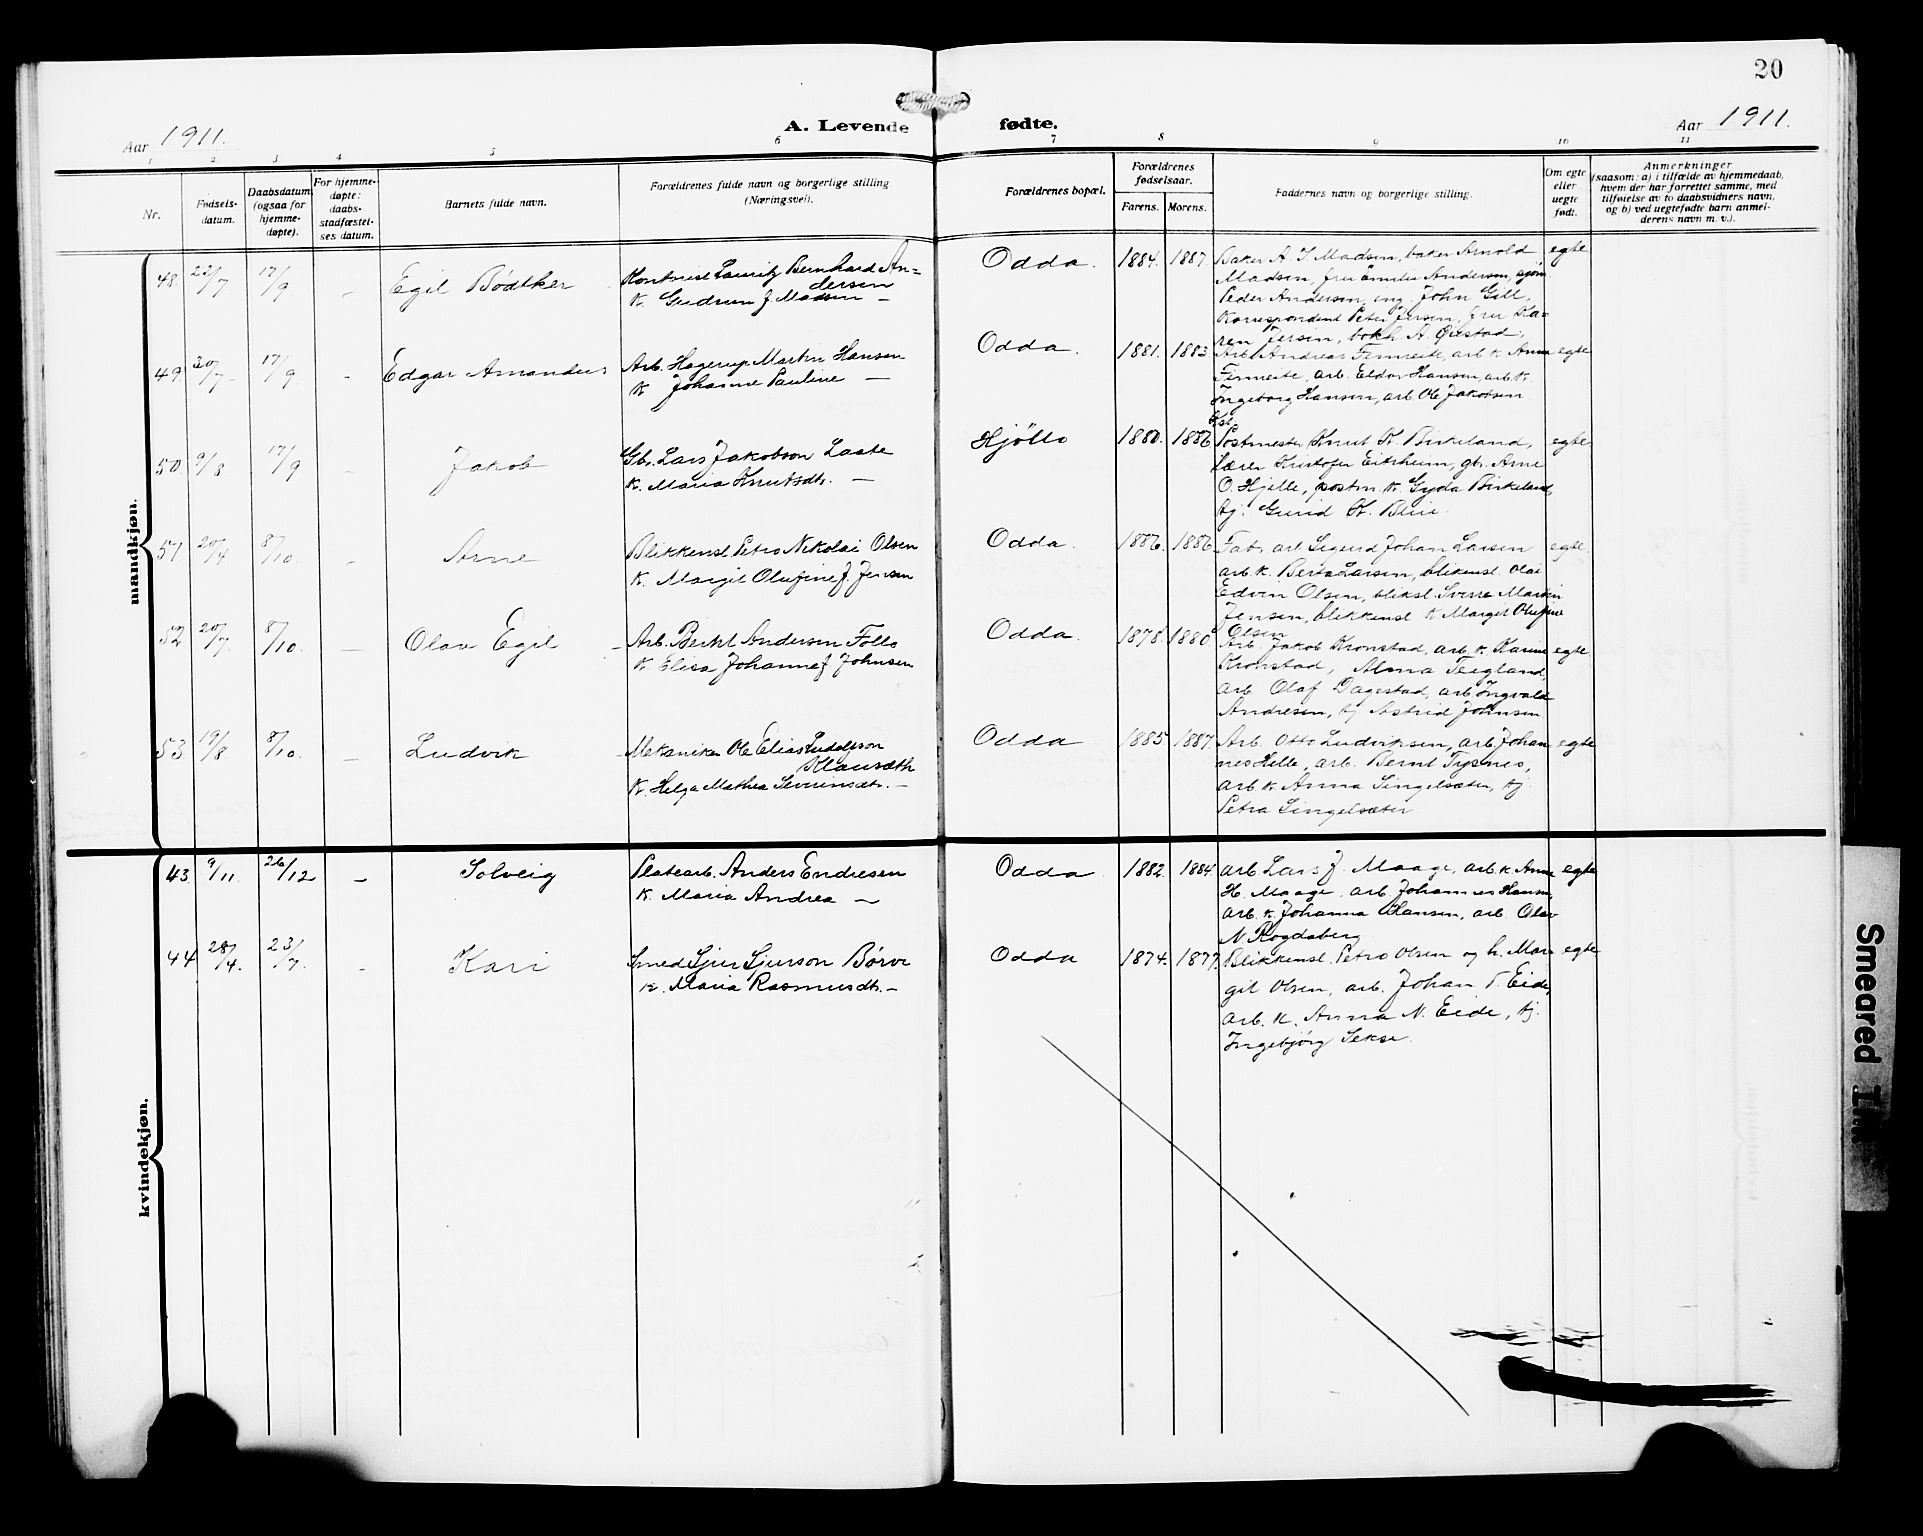 20
Aar 1911.
A. Levende fødte.
Aar 1911.
1 2 3 4 5 6 7 8 9 10 11
Nr.
Fødsels-
datum.
Daabsdatum
(ogsaa for
hjemme-
døpte).
For hjemme-
døpte:
daabs-
stadfæstel-
ses datum.
Barnets fulde navn.
Forældrenes fulde navn og borgerlige stilling
(Næringsvei).
Forældrenes bopæl.
Forældrenes
fødselsaar.
Farens. Morens.
Faddernes navn og borgerlige stilling.
Om egte
eller
uegte
født.
Anmerkninger
(saasom: a) i tilfælde av hjemmedaab,
hvem der har forrettet samme, med
tilføielse av to daabsvidners navn,
og b) ved uegtefødte barn anmel-
derens navn m. v.).
mandkjøn.
48. 22/7 17/9 - Egil Bödtker
Kontorist Lauritz Bernhard An-
dersen
K. Gudrun f. Madsen —
Odda. 1884. 1887.
Baker A. J. Madsen, baker Arnold
Madsen, fru Emilie Andersen, sjøm.
Peder Andersen, ing. John Gill,
Korrespondent Peter Jersen, fru Ka-
ren Jersen, bokh. A. Qvistad.
egte
49. 30/7 17/9 - Edgar Amandus
Arb. Hagerup Martin Hansen
K Johanne Pauline —
Odda. 1881. 1883
Arb. Andreas Finnreite, arb. k. Anna
Finnreite, arb. Eldor Hansen, arb. k.
Ingeborg Hansen, arb. Ole Jakobsen
egte
50 9/8 17/9 - Jakob
Gbr. Lars Jakobson Laate
K. Maria Knutsdtr. —
Hjöllo 1880. 1886
Postmester Knut K. Birkeland,
Lærer Kristofer Eitrheim, gbr. Arne
O. Hjelle, postm. k. Gyda Birkeland,
tj. Gurid K.
egte
51 20/4 8/10. - Arne
Blikkensl. Petro Nikolai Olsen
K. Margit Olufine f. Jensen
Odda. 1886. 1886
Fabr. arb. Sigurd Johan Larsen
arb. k. Berta Larsen, blikensl. Olai
Edvin Olsen, bliksl. Sverre Martin
Jensen, blikkensl. k Margit Olufine
Olsen
egte
52 20/7. 8/10. — Olav Egil
Arb. Bernt Andersen Follo
K. Elisa Johanne f. Johnsen
Odda. 1878. 1880
Arb. Jakob Kronstad, arb. k. Karine
Kronstad, Alma Teigland,
arb. Olaf Dagestad, arb. Ingvald
Andresen, tj Astrid Johnsen
egte
53. 19/8. 8/10. — Ludvik
Mekaniker Ole Elias Ludolfson
K. Helga Mathea Severinsdtr. —
Odda 1885. 1887.
Arb. Otto Ludviksen, arb. Johan
nes Helle, arb. Bernt Tysnes,
arb. k. Anna Singelsæter, tj.
Petra Singelsæter
egte
kvindekjøn.
43. 9/11. 26/12 - Solveig
Platearb. Anders Endresen
K. Maria Andrea —
Odda 1882. 1884.
arb. Lars J. Maage, arb. k. Anna
H. Maage, arb. Johannes Hansen,
arb. k. Johanna Hansen, arb. Olav
N. Rogdaberg
egte
44 28/4. 23/7. - Kari
Smed Sjur Sjurson Børve
K. Maria Rasmusdtr. —
Odda 1874. 1877.
Blikkensl. Petro Olsen og h. Mar-
git Olsen, arb. Johan T. Eide,
arb. k. Anna N. Eide, tj.
Ingebjørg Sekse.
egte
Smeared Ink